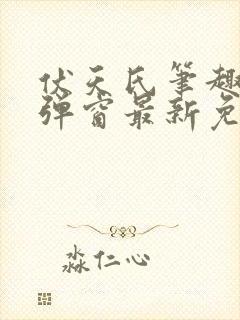 伏天氏笔趣
弹窗最新免
淼仁心